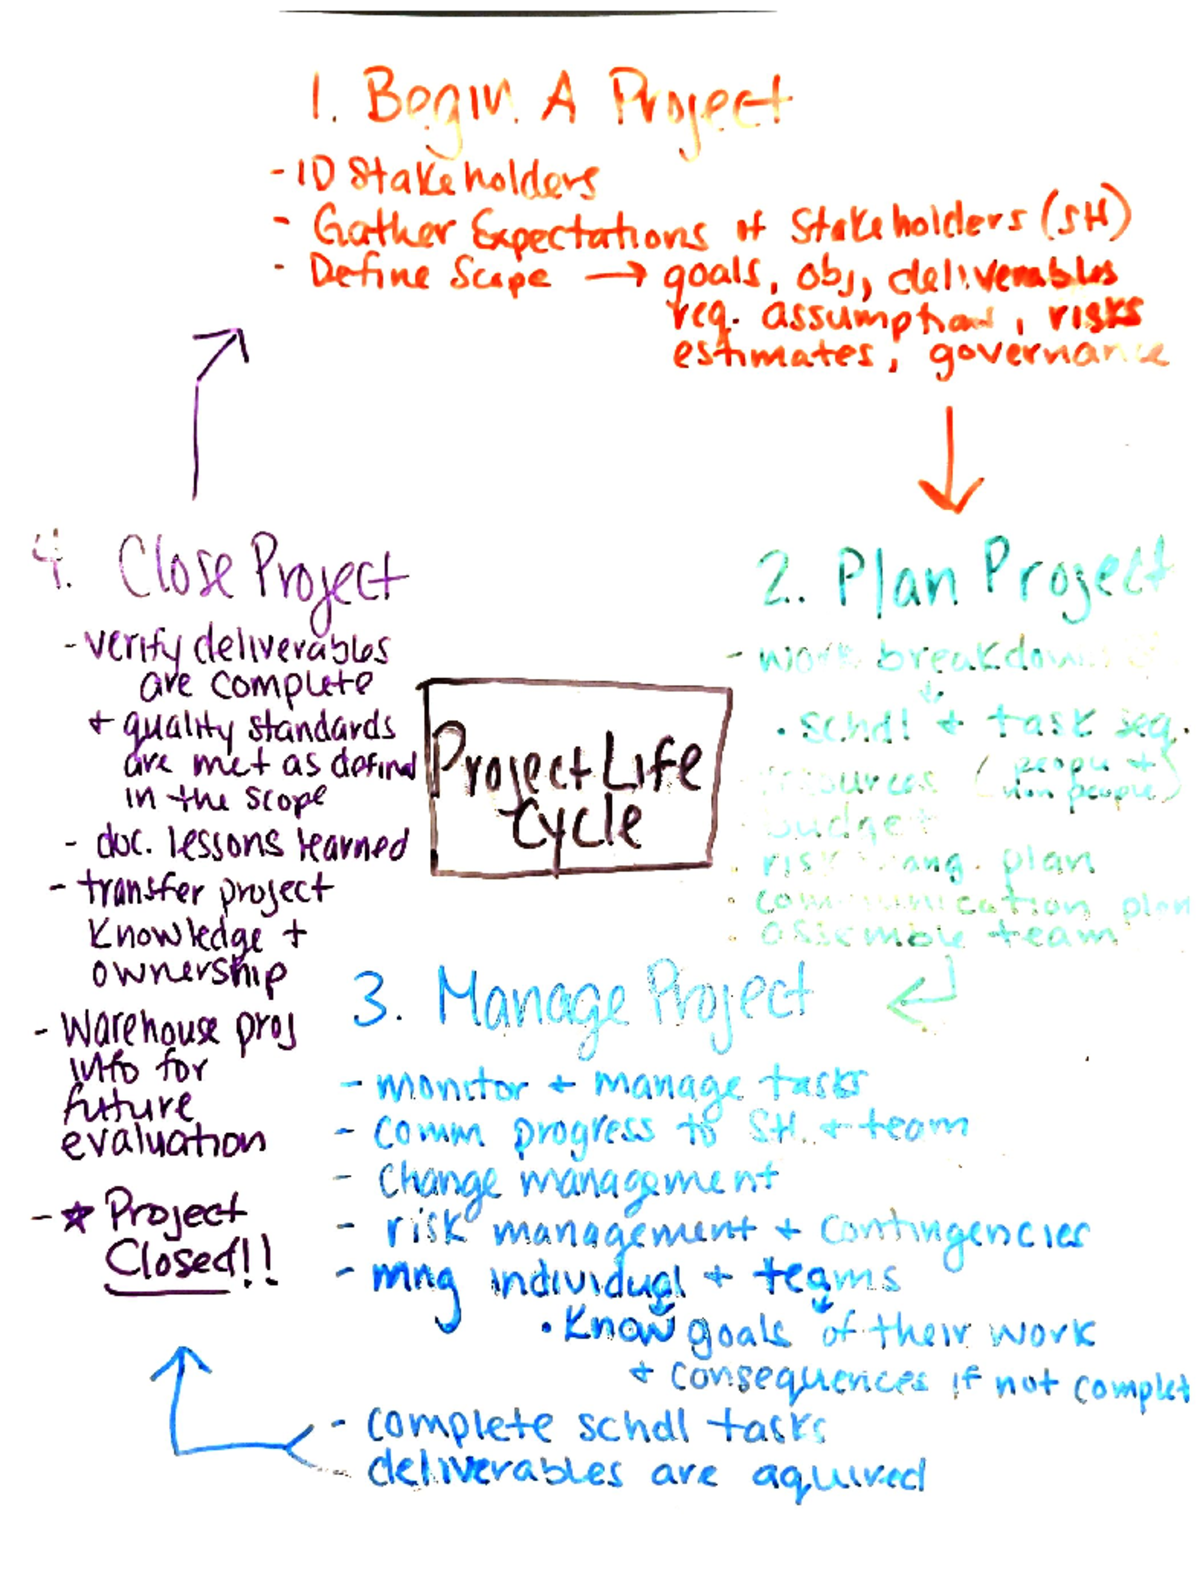 1. Begin A Project
- ID Stakeholders
- Gather Expectations of Stakeholders (SH)
- Define Scope → goals, obj, deliverables
req. assumption, risks
estimates, governance
2. Plan Project
- work breakdown
• schdl + task seq.
resources (people +
non people)
budget
• risk mang. plan
• communication plan
• assemble team
Project Life
Cycle
3. Manage Project
- monitor + manage tasks
- comm progress to SH + team
- change management
- risk management + contingencies
- mng individual + teams
• Know goals of their work
+ consequences if not complet
- complete schdl tasks
- deliverables are aquired
4. Close Project
- verify deliverables
are complete
+ quality standards
are met as defind
in the scope
- doc. lessons learned
- transfer project
Knowledge +
ownership
- Warehouse proj
info for
future
evaluation
- ★ Project
Closed!!